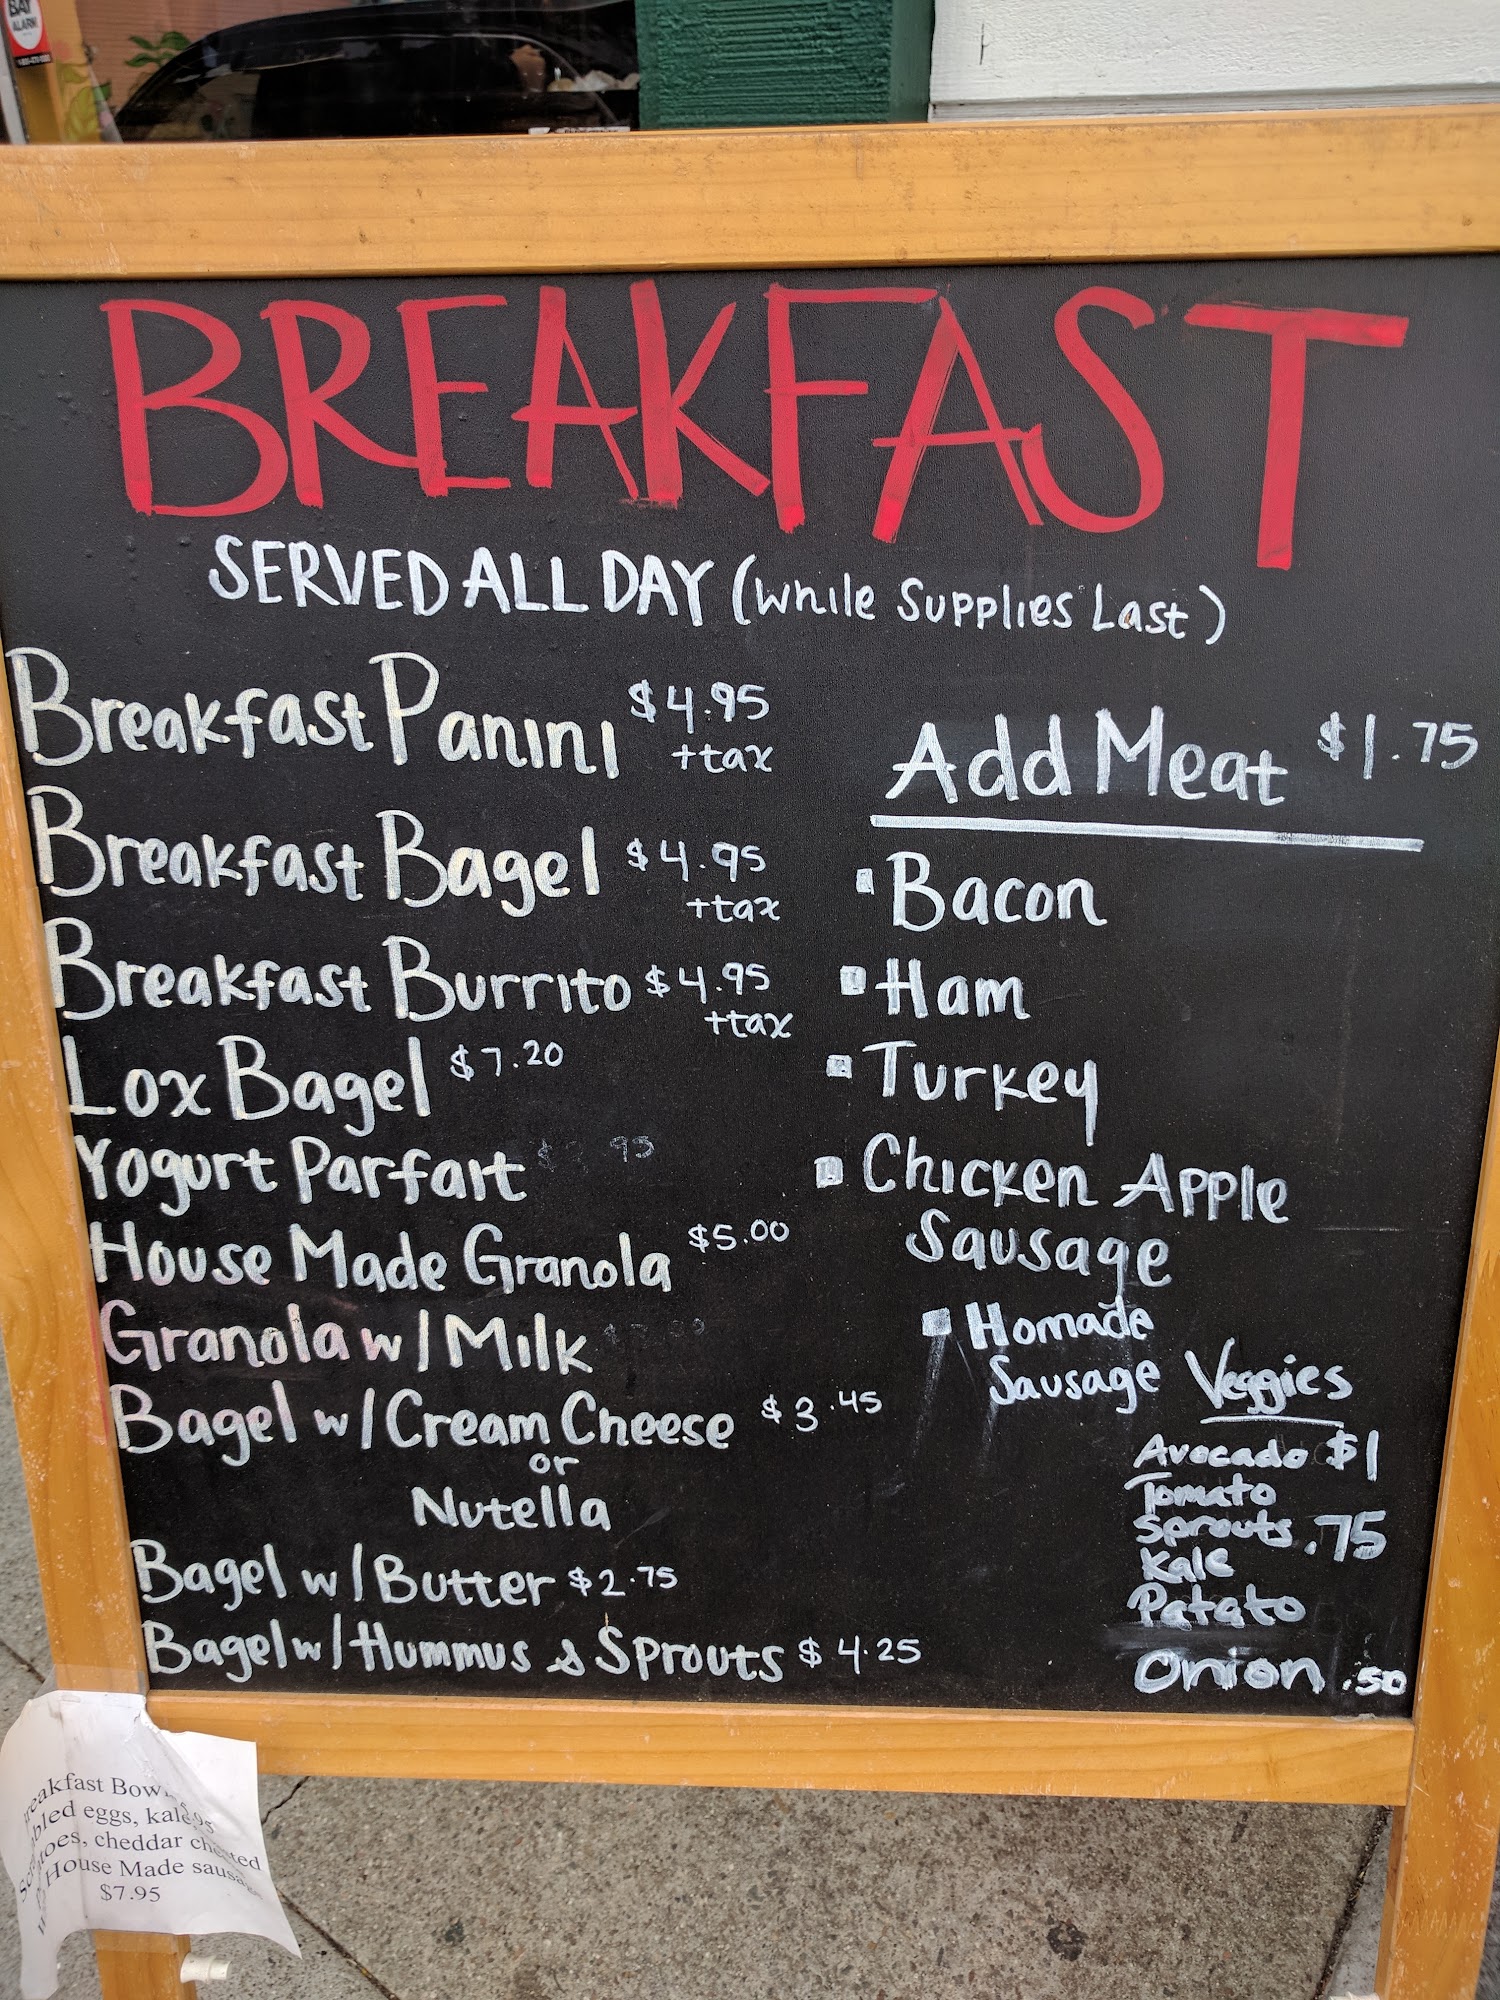 BAY
ALARM
BREAKFAST
SERVED ALL DAY (While Supplies Last)
Breakfast Panini $4.95
+tax
Breakfast Bagel $4.95
+tax
Breakfast Burrito $4.95
+tax
Lox Bagel $7.20
Yogurt Parfait
House Made Granola $5.00
Granola w/ Milk
Bagel w/ Cream Cheese $3.45
or
Nutella
Bagel w/ Butter $2.75
Bagel w/ Hummus & Sprouts $4.25
Add Meat $1.75
Bacon
Ham
Turkey
Chicken Apple
Sausage
Homade
Sausage
Veggies
Avocado $1
Tomato
Sprouts .75
Kale
Patato
Onion .50
eggs, kale
cheddar
House Made
$7.95